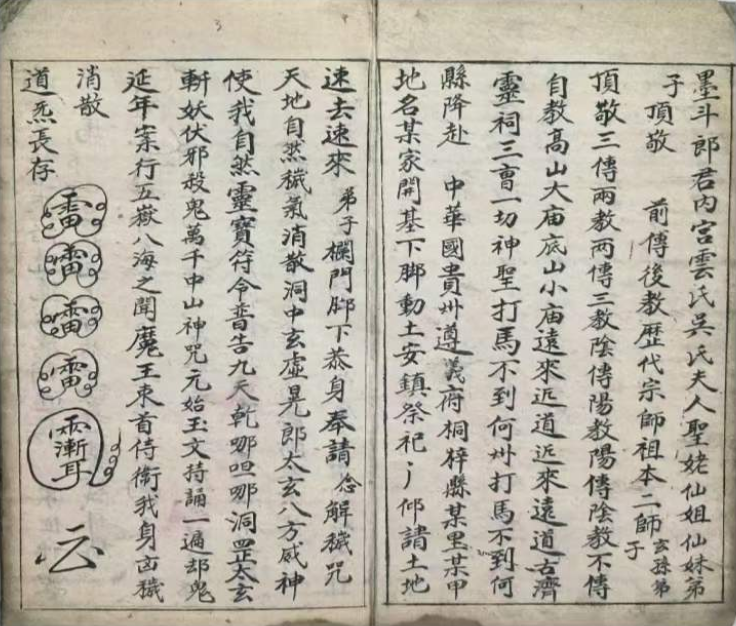 墨斗郎君內宮雲氏吳氏夫人聖姥仙姐仙妹弟
子頂敬 前傳後教歷代宗師祖本二師玄孫弟子
頂敬三傳兩教两傳三教陰傳陽教陽傳陰教不傳
自教高山大庙底山小庙遠來近道近來遠道古濟
靈祠三曹一切神聖打馬不到何州打馬不到何
縣降赴 中華國貴州遵義府桐梓縣某里某甲
地名某家開基下脚動土安鎮祭祀 仰請土地
速去速來 弟子欄門脚下恭身奉請 念解穢咒
天地自然穢氣消散洞中玄虛晃郎太玄八方威神
使我自然靈寶符令普告九天乾哪呾哪洞罡太玄
斬妖伏邪殺鬼萬千中山神咒元始玉文持誦一遍却鬼
延年案行五嶽八海之聞魔王束首侍衛我身凶穢
消散
道炁長存
云